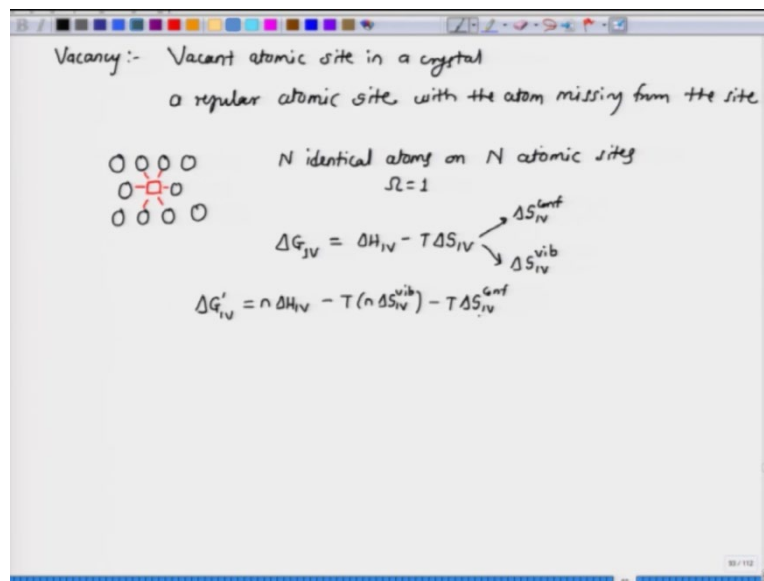 Vacancy:- Vacant atomic site in a crystal
a regular atomic site with the atom missing from the site
N identical atoms on N atomic sites
Ω=1
ΔS_IV^Conf
ΔG_IV = ΔH_IV - TΔS_IV
ΔS_IV^vib
ΔG'_IV = nΔH_IV - T(nΔS_IV^vib) - TΔS_IV^Conf